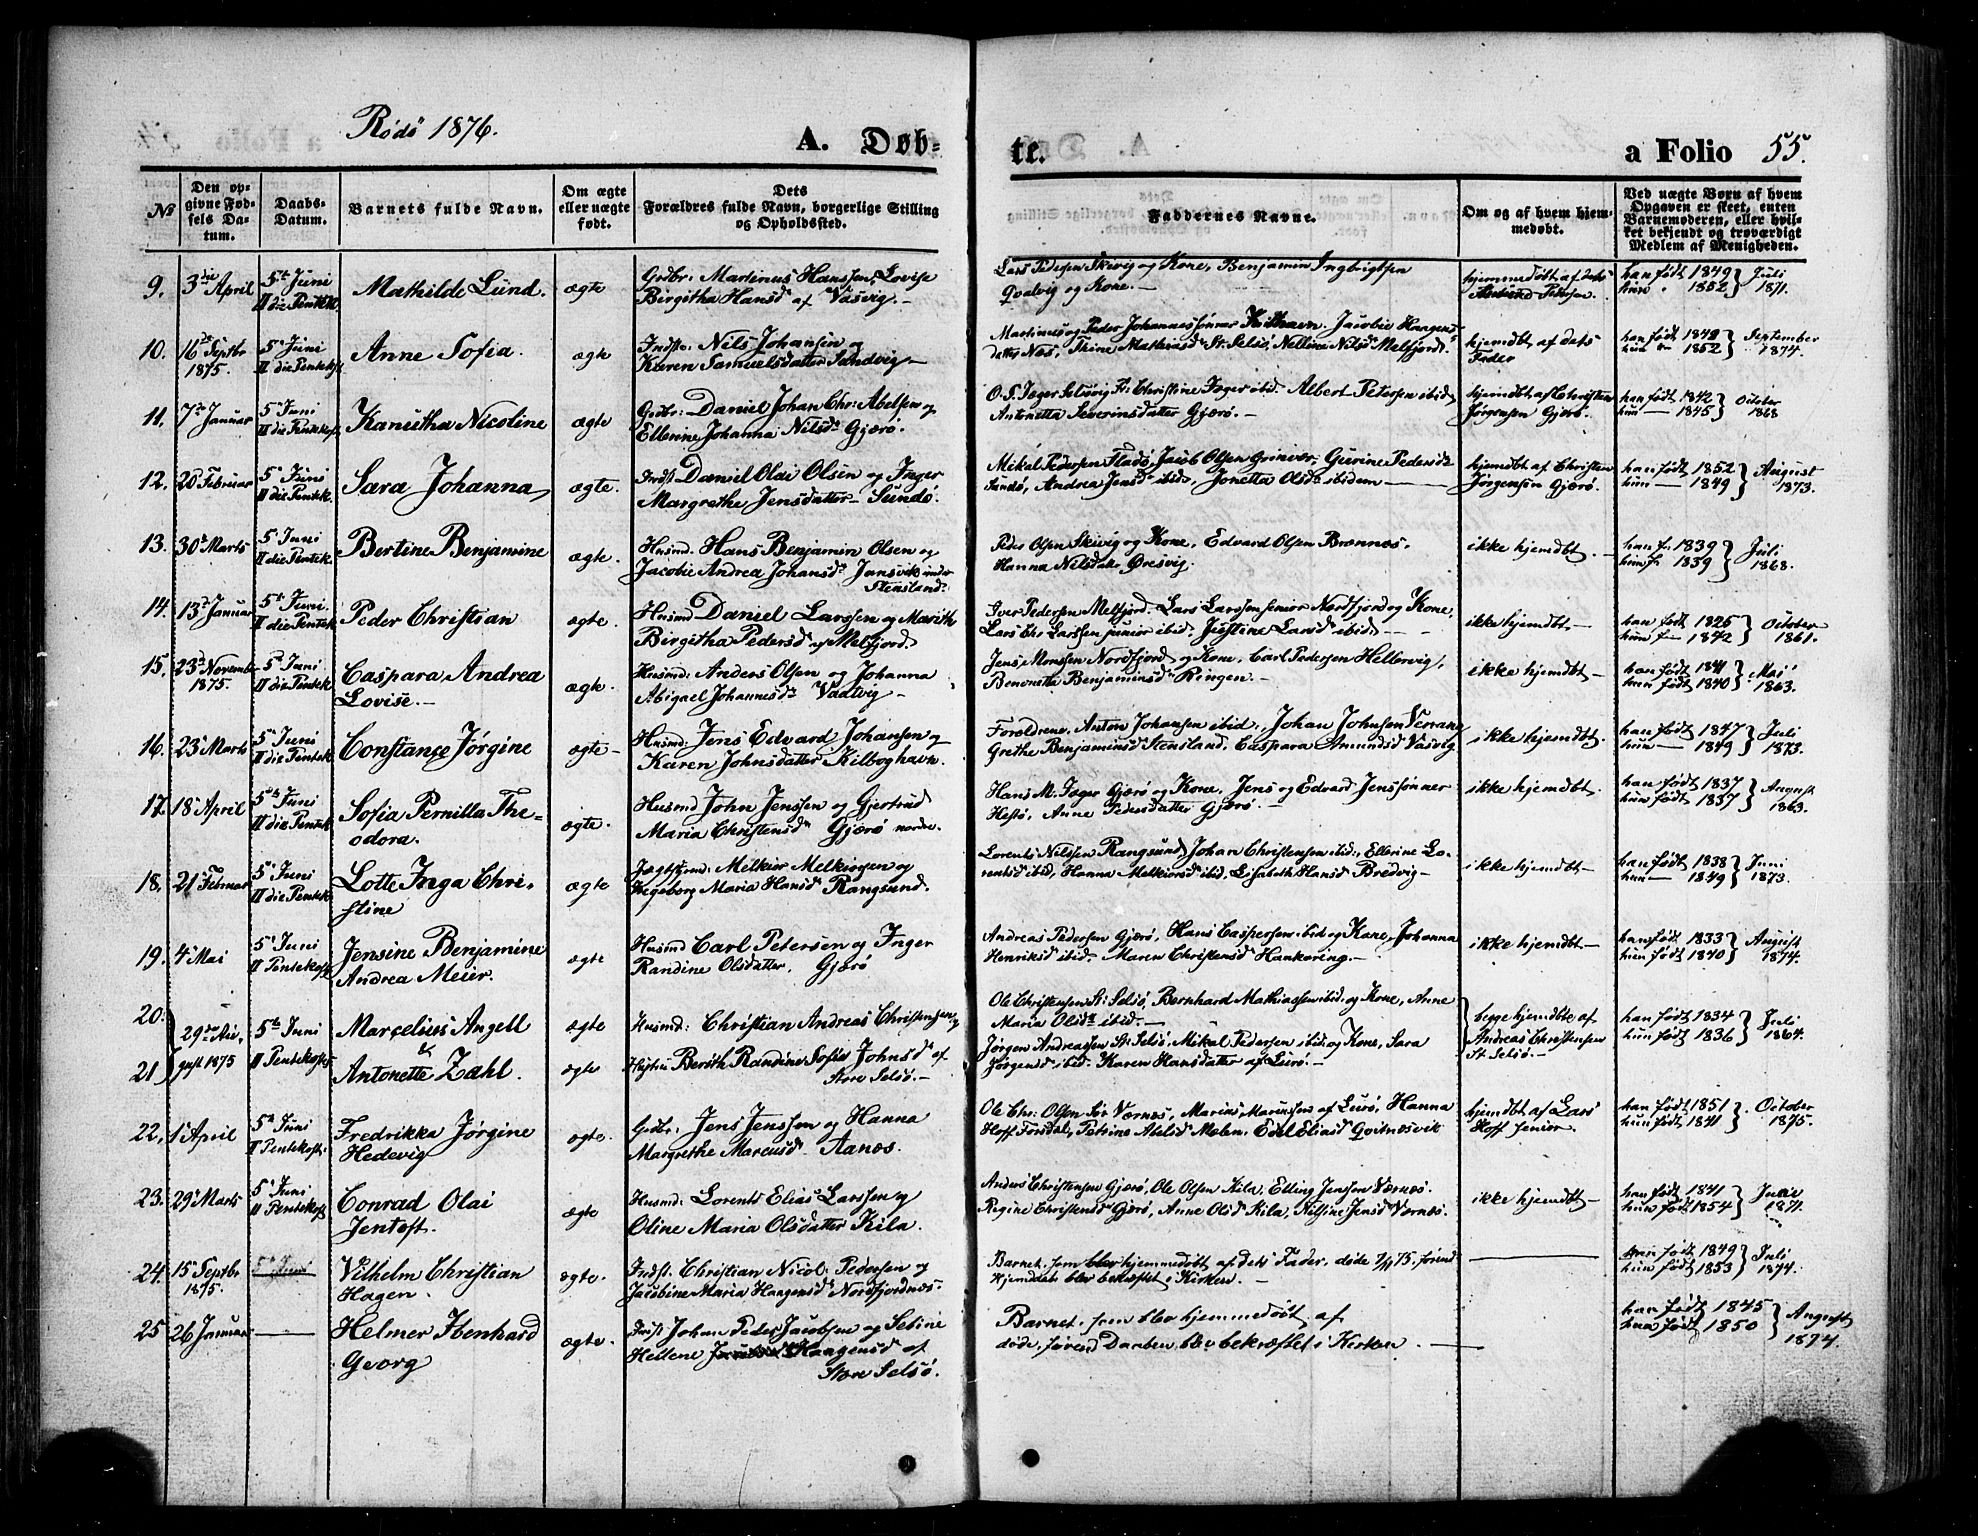 Rödö 1876.
A. Døb-
te.
a Folio 55.
No
Den op-
givne Fød-
sels Da-
tum.
Daabs-
Datum.
Barnets fulde Navn.
Om ægte
eller uægte
født.
Dets
Forældres fulde Navn, borgerlige Stilling
og Opholdssted.
Faddernes Navne.
Om og af hvem hjem-
medøbt.
Ved uægte Børn af hvem
Opgaven er skeet, enten
Barnemoderen, eller hvil-
ket bekjendt og troværdigt
Medlem af Menigheden.
9. 3die April 5te Juni Mathilde Lund. ægte Grdbr: Martinus Hanssen, Lovise
II die Pentek. Birgitha Hansd af Vasvig.
Lars Pedersen Skivig og Kone, Benjamin Ingbrigtsen
og Kone.
hjemmedøbt af dets
Pedersen.
han født 1849 } Juli
hun " 1852 } 1871.
10. 16de Septbr 5te Juni Anne Sofia. ægte Indst: Nils Johansen og
1875. II die Pentek. Karen Samuelsdatter Sundvig
Martinus og Peder Johannessønner Johavn. Jacobie Haagens
datter Næs, Trine Mathiasd St. Selsö, Nelline Nilsd Melfjord.
hjemdbt af dets
Fader
han født 1842 } September
hun " 1852 } 1874.
11. 7de Januar 5te Juni Kanutha Nicoline ægte Grdbr: Daniel Johan Chr: Abelsen og
II die Pentek. Ellerine Johanna Nilsd Gjærö.
O. S. Jæger Selsövig Fr: Christine Jæger ibid. Albert Petersen ibid
Antonetta Severinsdatter Gjærö.
hjemdbt af Christen
Jørgensen Gjærö.
han født 1842 } October
hun — 1845 } 1868
12. 20 Februar 5te Juni Sara Johanna ægte. Indst Daniel Olai Olsen og Inger
II die Pentek. Margrethe Jensdatter Sundö.
Mikal Pedersen Fladö, Jacob Olsen Grinvær, Gurine Pedersd
Sundö, Andrea Jensd ibid, Jonetta Olsd ibidem
hjemdbt af Christen
Jørgensen Gjærö.
han født 1852 } August
hun — 1849 } 1873.
13. 30te Marts 5te Juni Bertine Benjamine ægte. Husmd. Hans Benjamin Olsen og
II die Pentek. Jacobie Andrea Johansd Jonsvik under
Stensland.
Peder Olsen Skivig og Kone, Edvard Olsen Brennæs.
Hanna Nilsdatr Øresvig.
ikke hjemdbt.
han f. 1839 } Juli
hun f. 1839 } 1868.
14. 13de Januar 5te Juni. Peder Christian ægte. Husmd Daniel Larssen og Marith
II die Pentek. Birgitha Pedersd af Melfjord.
Iver Pedersen Melfjord. Lars Larssen senior Nordfjord og Kone,
Lars Chr Larssen junior ibid. Justine Larsd ibid.
ikke hjemdbt
han født 1825 } October
hun f. 1842 } 1861.
15. 23de November 5te Juni Caspara Andrea ægte. Husmd. Anders Olsen og Johanna
1875. II die Pentek. Lovise. Abigael Johannesd Vaatvig
Jens Monssen Nordfjord og Kone, Carl Pedersen Hellervig,
Benonetta Benjaminsd Ringen.
ikke hjemdbt
han født 1841 } Mai
hun født 1840 } 1863.
16. 23de Marts 5te Juni Constance Jørgine ægte Husmd. Jens Edvard Johansen og
II die Pentek. Karen Johnsdatter Kilboghavn.
Forældrene, Anton Johansen ibid. Johan Johnsen Værang
Grethe Benjaminsd Stensland, Caspara Amundsd Vasvig
ikke hjemdbt.
han født 1847 } Juli
hun — 1849 } 1873.
17. 18de April 5te Juni Sofia Pernilla The- ægte. Husmd John Jenssen og Gjertrud
II die Pentek odora. Maria Christensd Gjærö nordre.
Hans M. Jæger Gjærö og Kone, Jens og Edvard Jenssønner
Hestö, Anne Pedersdatter Gjærö.
ikke hjemdbt
han født 1837 } August
hun født 1837 } 1863.
18. 21de Februar 5te Juni Lotte Inga Chri- ægte Melkior Melkiorsen og
II die Pentek. stine Ingeborg Maria Hansd Rangsund.
Lorents Nilssen Rangsund, Johan Christensen ibid., Ellerine Lo-
rentsd ibid, Hanna Melkiorsd ibid, Elisabeth Hansd Bredvig
ikke hjemdbt
han født 1838 } Juni
hun — 1849 } 1873.
19. 4de Mai 5te Juni Jensine Benjamine ægte Husmd Carl Petersen og Inger
II Pentekost Andrea Meier. Randine Olsdatter. Gjærö
Andreas Pedersen Gjærö, Hans Caspersen ibid og Kone, Johanna
Henriksd ibid. Maren Christensd Haakøring.
ikke hjemdbt
han født 1833 } August
hun født 1840 } 1874.
20. 29de Au- 5te Juni Marcelius Angell ægte Husmd: Christian Andreas Christensen og
Ole Christensen St: Selsö, Bernhard Mathiassen ibid. og Kone, Anne
Maria Olsd ibid.
begge hjemdbte af
Andreas Christensen
St Selsö.
han født 1834 } Juli
hun født 1836 } 1864.
21 gust 1875 II Pentekost & Antonette Zahl. ægte Hustru Berith Randine Sofie Johnsd af
Store Selsö.
Jørgen Andreassen St. Selsö, Mikal Pedersen ibid og Kone, Sara
Jørgensd ibid. Karen Hansdatter af Lurö.
22. 1ste April 5te Juni Fredrikka Jørgine ægte. Grdbr: Jens Jenssen og Hanna
II Pentekost. Hedevig Margrethe Marcusd Aanæs.
Ole Chr: Olsen Sör Værnæs, Marius Mariussen af Lurö, Hanna
Hoff Forsdal, Petrine Abelsd Melen, Edel Eliasd Qvitnæsvik
hjemdbt af Lars
Hoff senior.
han født 1851 } October
hun født 1841 } 1875.
23. 29de Marts 5te Juni Conrad Olai ægte Husmd: Lorents Elias Larssen og
II Pentekost Jentoft. Oline Maria Olsdatter Kila.
Anders Christensen Gjærö, Ole Olsen Kila, Elling Jenssen Værnæs.
Regine Christensd Gjærö, Anne Olsd Kila, Nilsine Jensd Værnæs.
ikke hjemdbt
han født 1841 }
hun født 1854 } 1871.
24. 15de Septbr 5te Juni Vilhelm Christian ægte. Indst. Christian Nicol: Pedersen og
1875. Hagen. Jacobine Maria Haagensd Nordfjordnæs.
Barnet, som blev hjemmedøbt af dets Fader, døde 7/11 75, førend
Hjemdaab blev bekræftet i Kirken.
han født 1849 } Juli
hun født 1853 } 1874.
25 26 Januar — Helmer Ibenhard ægte. Indst Johan Peder Jacobsen og Seline
Georg Hellene Haagensd af
Store Selsö.
Barnet, som blev hjemmedøbt af
døde, førend Daaben blev bekræftet i Kirken.
han født 1845 } August
hun født 1850 } 1874.